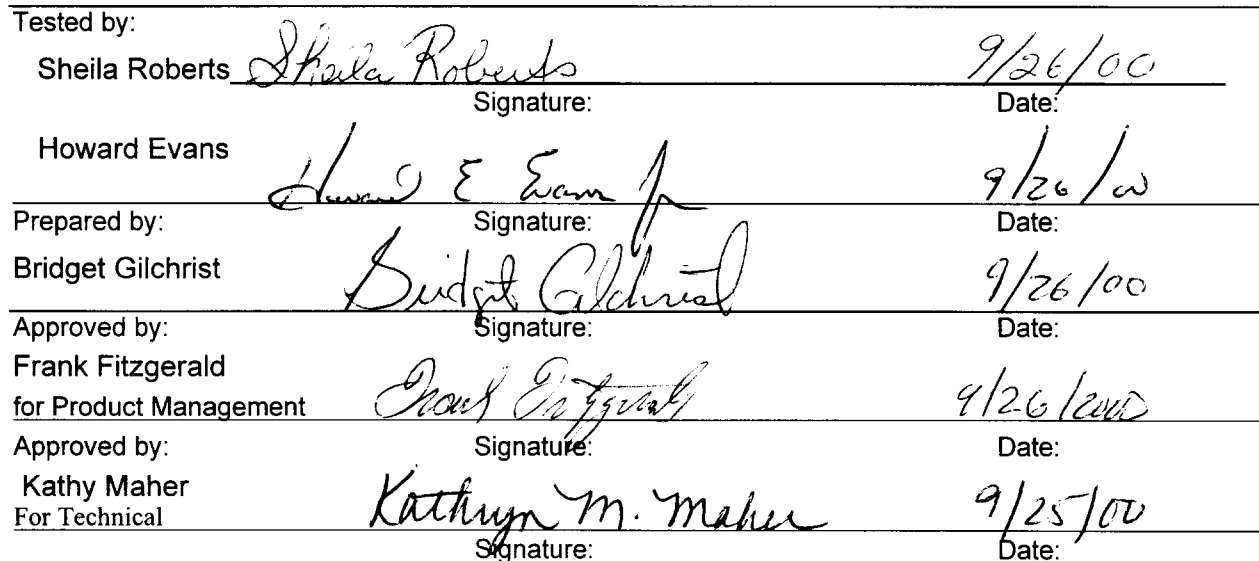 Tested by:
Sheila Roberts Sheila Roberts 9/26/00
Signature: Date:
Howard Evans Howard E Evans Jr 9/26/00
Prepared by: Signature: Date:
Bridget Gilchrist Bridget Gilchrist 9/26/00
Approved by: Signature: Date:
Frank Fitzgerald
for Product Management Frank Fitzgerald 9/26/2000
Approved by: Signature: Date:
Kathy Maher
For Technical Kathryn M. Maher 9/25/00
Signature: Date: